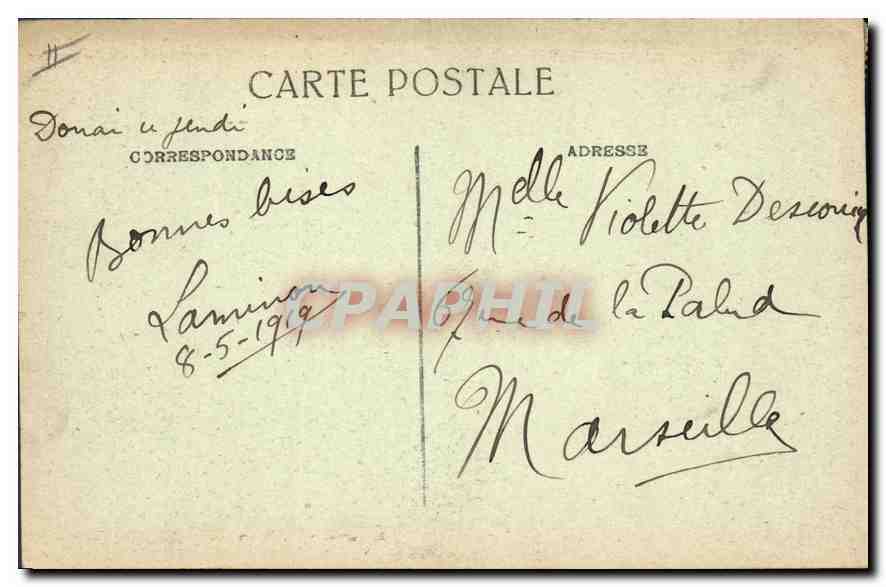 CARTE POSTALE
Douai ce jeudi
CORRESPONDANCE
ADRESSE
Bonnes bises
Laminon
8-5-1919
Melle Violette
rue de la Palud
Marseille
CPAPHIL